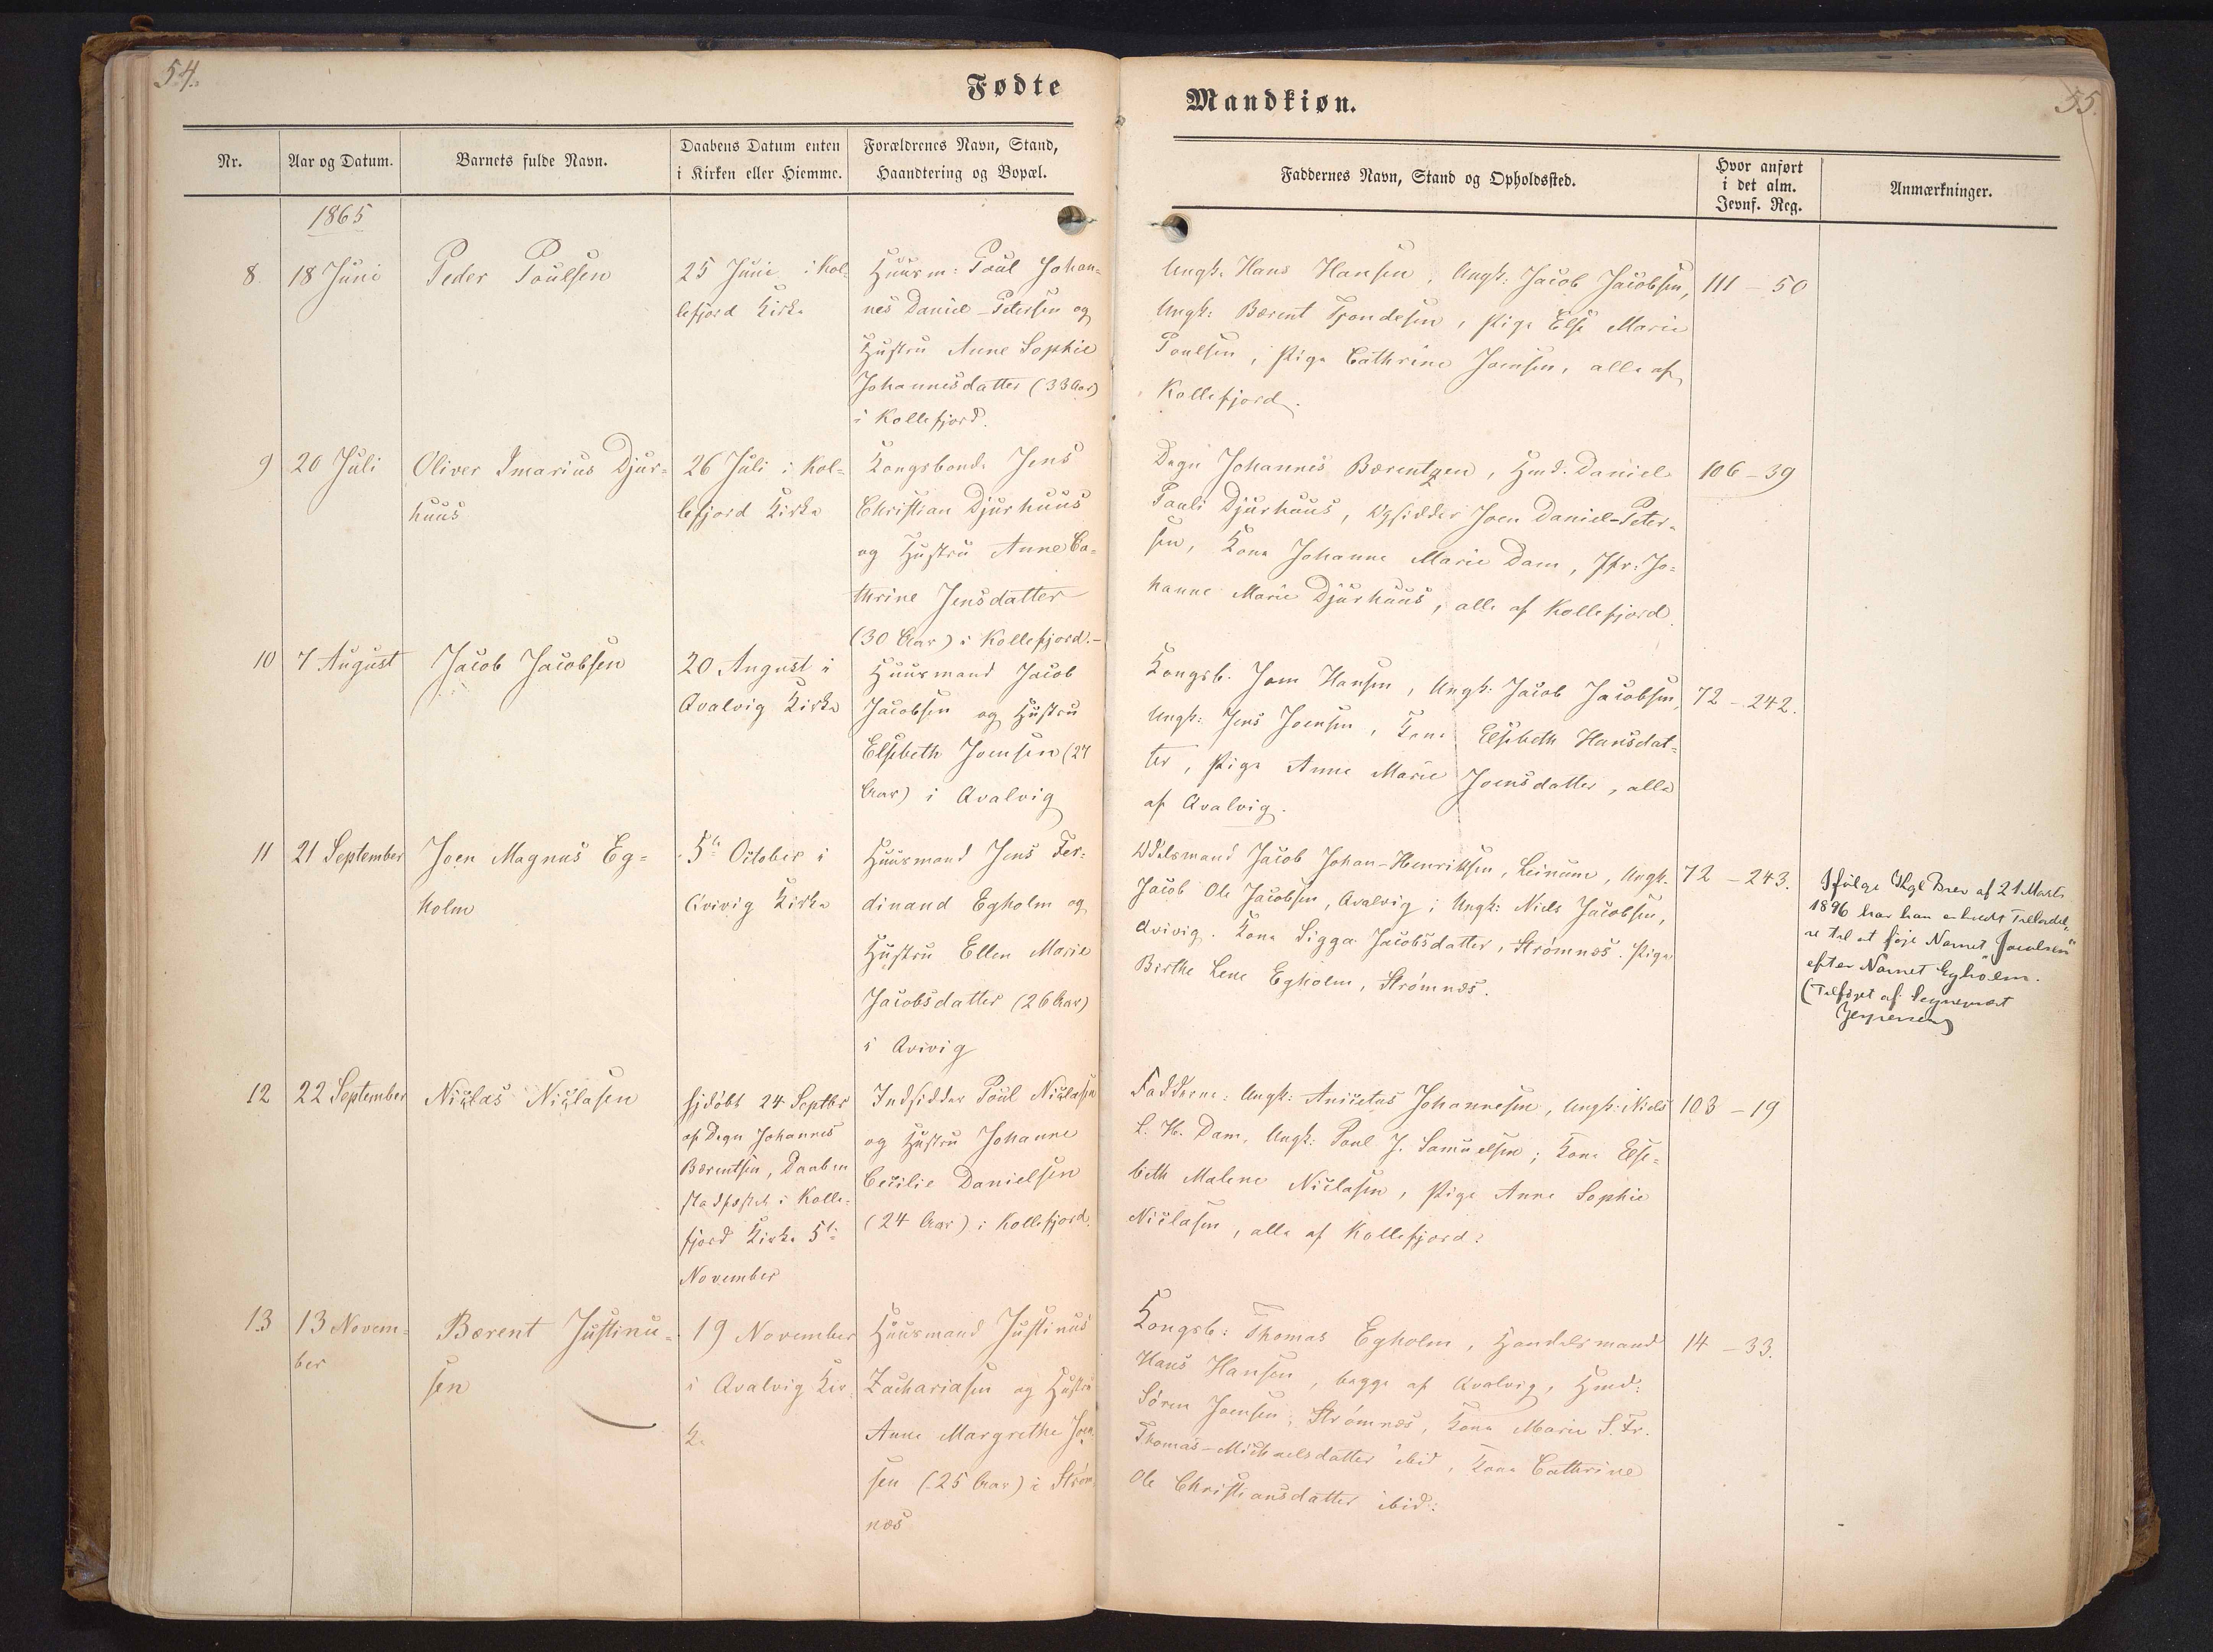 54.
Fødte
Nr.
Aar og Datum.
Barnets fulde Navn.
Daabens Datum enten
i Kirken eller Hiemme.
Forældrenes Navn, Stand,
Haandtering og Bopæl.
1865
8
18 Juni
Peder Poulsen
25 Juni i Kol-
lefjord Kirke
Huusm: Poul Johan-
nes Daniel-Petersen og
Hustru Anne Sophie
Johannesdatter (33 Aar)
i Kollefjord.
9
20 Juli
Oliver Imarius Djur-
huus
26 Juli i Kol-
lefjord Kirke
Kongsbonde Jens
Christian Djurhuus
og Hustru Anne Ca-
thrine Jensdatter
(30 Aar) i Kollefjord.-
10
7 August
Jacob Jacobsen
20 August i
Qvalvig Kirke
Huusmand Jacob
Jacobsen og Hustru
Elsebeth Joensen (27
Aar) i Qvalvig
11
21 September
Joen Magnus Eg-
holm
5te October i
Qvivig Kirke
Huusmand Jens Fer-
dinand Egholm og
Hustru Ellen Marie
Jacobsdatter (26 Aar)
i Qvivig
12
22 September
Niclas Niclasen
hjdøbt 24 Septbr
af Degn Johannes
Bærentsen, Daaben
stadfæstet i Kolle-
fjord Kirke 5te
November
Indsidder Poul Niclasen
og Hustru Johanne
Cecilie Danielsen
(24 Aar) i Kollefjord.
13
13 Novem-
ber
Bærent Justinu-
sen
19 November
i Qvalvig Kir-
ke
Huusmand Justinus
Zachariasen og Hustru
Anne Margrethe Joen-
sen (25 Aar) i Strøm-
næs
55.
Mandkiøn.
Faddernes Navn, Stand og Opholdssted.
Hvor anført
i det alm.
Jevnf. Reg.
Anmærkninger.
Ungk. Hans Hansen, Ungk: Jacob Jacobsen,
Ungk: Bærent Trondesen, Pige Else Marie
Poulsen, Pige Cathrine Joensen, alle af
Kollefjord.
111 - 50
Degn Johannes Bærentzen, Hmd. Daniel
Pauli Djurhuus, Opsidder Joen Daniel-Peter-
sen, Kone Johanne Marie Dam, Jfr: Jo-
hanne Marie Djurhuus, alle af Kollefjord.
106 - 39
Kongsb. Joen Hansen, Ungk: Jacob Jacobsen,
Ungk: Jens Joensen, Kone Elsebeth Hansdat-
ter, Pige Anne Marie Joensdatter, alle
af Qvalvig.
72 - 242.
Odelsmand Jacob Johan-Henriksen, Leinum, Ungk.
Jacob Ole Jacobsen, Qvalvig; Ungk: Niels Jacobsen,
Qvivig. Kone Sigga Jacobsdatter, Strømnæs. Pige
Birthe Lene Egholm, Strømnæs.
72 - 243.
Ifølge Kgl Brev af 21 Marts
1896 har han erholdt Tilladel-
se til at føje Navnet "Jacobsen"
efter Navnet Egholm.
(Tilføjet af Sognepræst
Jespersen)
Fadderne: Ungk: Anicetus Johannesen, Ungk: Niels
L. H. Dam, Ungk: Poul J. Samuelsen; Kone Else-
beth Malene Niclasen, Pige Anne Sophie
Niclasen, alle af Kollefjord:
103 - 19
Kongsb: Thomas Egholm, Handelsmand
Hans Hansen, begge af Qvalvig, Hmd:
Søren Joensen, Strømnæs, Kone Marie S. Fr.
Thomas-Michaelsdatter ibid, Kone Cathrine
Ole Christiansdatter ibid:
14 - 33.